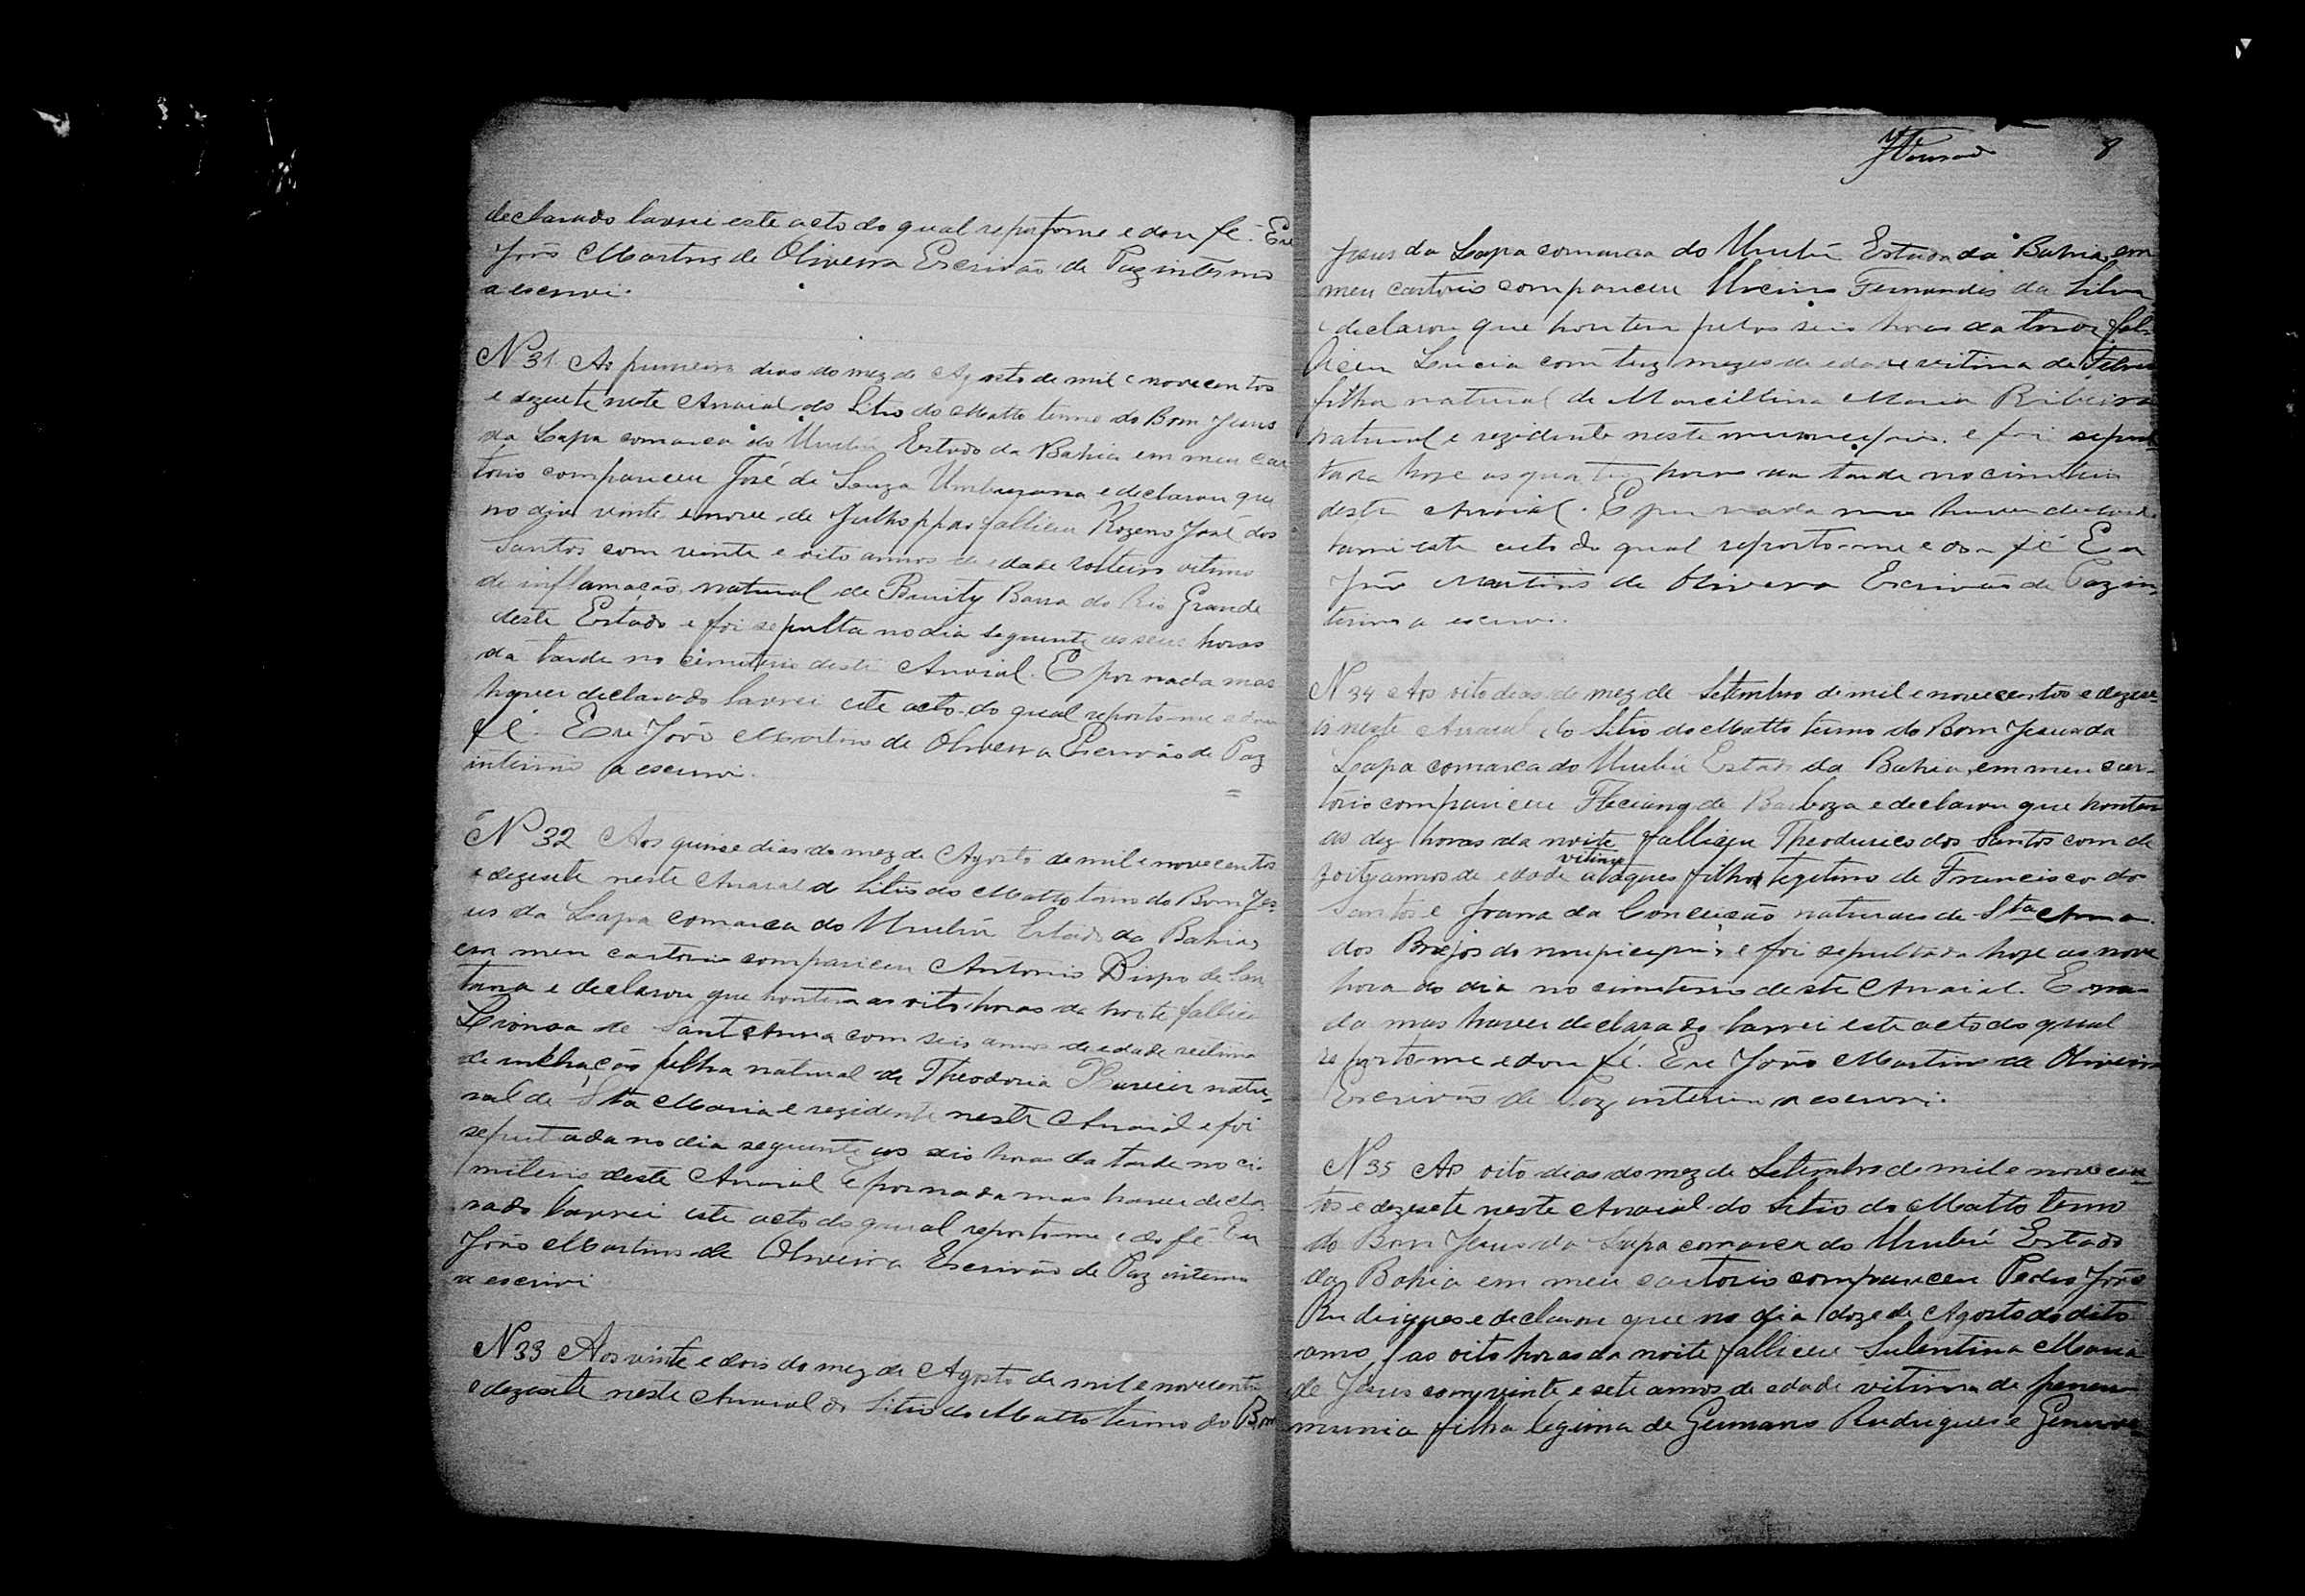 declarado lavrei este acto do qual reportome e dou fé. Eu
João Martins de Oliveira Escrivão de Paz interino
a escrevi.
N 31 As primeiro dias do mez de Agosto de mil e novecentos
e dezesete neste Arraial do Sitio do Matto termo do Bom Jesus
da Lapa comarca do Urubú Estado da Bahia em meu car
torio compareceu José de Souza Umburana e declarou que
no dia vinte e nove de Julho ppas falliceu Rozeno José dos
Santos com vinte e oito annos de edade solteiro vitima
de inflamação, natural de Burity Barra do Rio Grande
deste Estado e foi sepulta no dia seguinte as seis horas
da tarde no cimiterio deste Arraial. E por nada mas
haver declarado lavrei este acto do qual reporto-me e dou
fé. Eu João Martins de Oliveira Escrivão de Paz
interino a escrevi.
N 32 Aos quinse dias do mez de Agosto de mil e novecentos
e dezesete neste Arraial do Sitio do Matto termo do Bom Jes
us da Lapa comarca do Urubú Estado da Bahia,
em meu cartorio compareceu Antonio Bispo de San
tana e declarou que hontem as oito horas da noite falliceu
Leonoa de Sant Anna com seis annos de edade vitima
de inchação filha natural de Theodoria Xavier natu-
ral de Sta Maria e rezidente neste Arraial e foi
sepultada no dia seguinte as seis horas da tarde no ci-
miterio deste Arraial e por nada mas haver decla
rado lavrei este acto do qual reportome e do fé Eu
João Martins de Oliveira Escrivão de Paz interino
a escrevi
N 33 Aos vinte e dois do mez de Agosto de mil e novecentos
e dezesete neste Arraial do Sitio do Matto termo do Bom
8
Jesus da Lapa comarca do Urubú Estado da Bahia, em
meu cartorio compareceu Fernandes da Silva
e declarou que hontem pelas seis horas da tarde fal-
liceu Lucia com trez mezes de edade vitima de Febre
filha natural de Marcillina Maria Ribeiro
natural e rezidente neste municipio. e foi sepul
tada hoje as quatro horas da tarde no cimiterio
deste Arraial. E por nada mas haver declarado
lavrei este acto do qual reporto-me e dou fé Eu
João Martins de Oliveira Escrivão de Paz in-
terino a escrevi.
N 34 Aos oito dias do mez de Setembro de mil e novecentos e dezese-
is neste Arraial do Sitio do Matto termo do Bom Jesus da
Lapa comarca do Urubú Estado da Bahia, em meu car-
torio compareceu Feliciano de Barboza e declarou que hontem
as dez horas da noite falliceu Theodurico dos Santos com de
zoito annos de edade vitima ataques filho legitimo de Francisco dos
Santos e Joana da Conceição naturaes de Sta Anna
dos Brejos do municipio, e foi sepultado hoje as nove
hora do dia no cimiterio deste Arraial. E na-
da mas haver declarado lavrei este acto do qual
reporto-me e dou fé. Eu João Martins de Oliveira
Escrivão de Paz interino a escrevi.
N 35 Aos oito dias do mez de Setembro de mil e novecen
tos e dezesete neste Arraial do Sitio do Matto termo
do Bom Jesus da Lapa comarca do Urubú Estado
da Bahia em meu cartorio compareceu Pedro José
Rudrigues e declarou que no dia doze de Agosto do dito
anno as oito horas da noite falliceu Sulentina Maria
de Jesus com vinte e sete annos de edade vitima de peneu
munia filha legima de Germano Rudrigues e Genuve